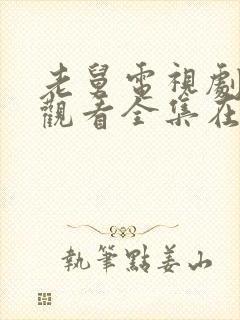 老舅電視劇
觀看全集在
執筆點姜山